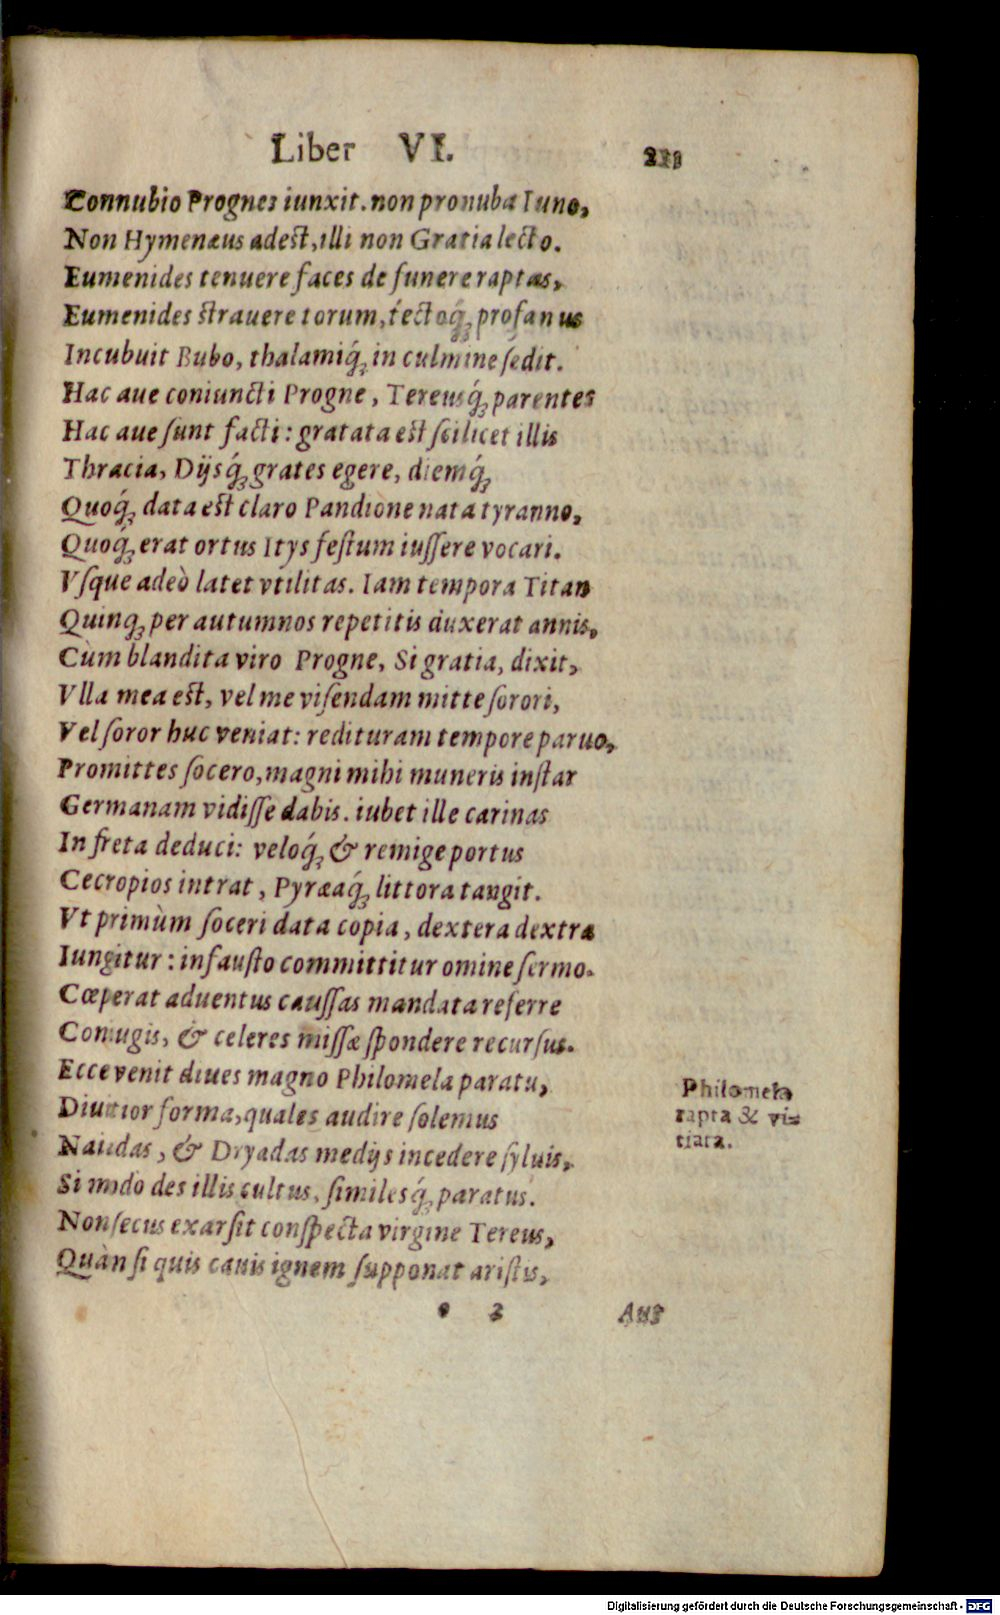 Liber VI. 213
Connubio Prognes iunxit. non pronuba Iuno,
Non Hymenæus adest, illi non Gratia lecto.
Eumenides tenuere faces de funere raptas,
Eumenides strauere torum, tectoq́; profanus
Incubuit Bubo, thalamiq́; in culmine sedit.
Hac aue coniuncti Progne, Tereusq́; parentes
Hac aue sunt facti: gratata est scilicet illis
Thracia, Dijsq́; grates egere, diemq́;
Quoq́; data est claro Pandione nata tyranno,
Quoq́; erat ortus Itys festum iussere vocari.
Vsque adeò latet vtilitas. Iam tempora Titan
Quinq; per autumnos repetitis duxerat annis,
Cùm blandita viro Progne, Si gratia, dixit,
Vlla mea est, vel me visendam mitte sorori,
Vel soror huc veniat: redituram tempore paruo,
Promittes socero, magni mihi muneris instar
Germanam vidisse dabis. iubet ille carinas
In freta deduci: veloq́; & remige portus
Cecropios intrat, Pyræaq́; littora tangit.
Vt primùm soceri data copia, dextera dextræ
Iungitur: infausto committitur omine sermo.
Cœperat aduentus caussas mandata referre
Coniugis, & celeres missæ spondere recursus.
Ecce venit diues magno Philomela paratu,
Diuitior forma, quales audire solemus
Naiidas, & Dryadas medijs incedere syluis,
Si modò des illis cultus, similesq́; paratus.
Non secus exarsit conspecta virgine Tereus,
Quàm si quis cauis ignem supponat aristis,
Philomela
rapta & vi-
tiata.
o 3 Aut